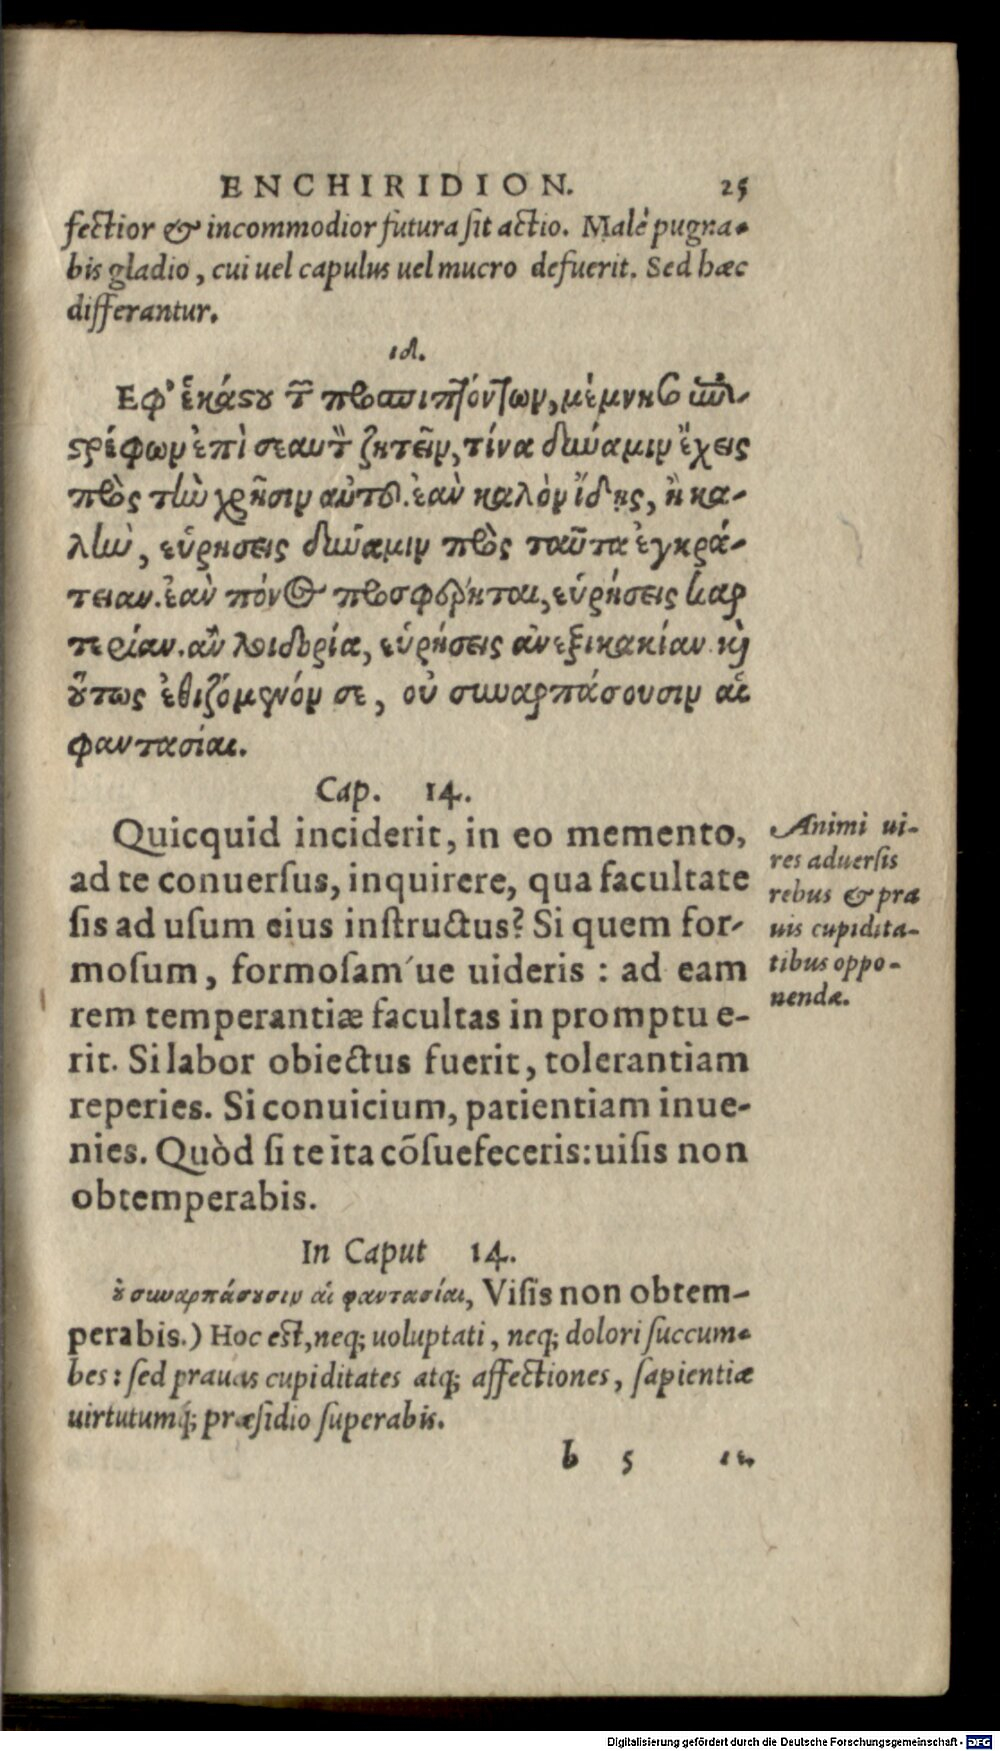 ENCHIRIDION. 25
fectior & incommodior futura ſit actio. Malè pugna-
bis gladio, cui uel capulus uel mucro defuerit. Sed hæc
differantur.
ιδ.
Εφ' ἑκάστου τῶν προσπιπτόντων, μέμνησο ἐπι-
στρέφων ἐπὶ σεαυτὸν ζητεῖν, τίνα δύναμιν ἔχεις
πρὸς τὴν χρῆσιν αὐτοῦ. ἐὰν καλὸν ἴδῃς, ἢ κα-
λὴν, εὑρήσεις δύναμιν πρὸς ταῦτα ἐγκρά-
τειαν. ἐὰν πόνος προσφέρηται, εὑρήσεις καρ
τερίαν. ἂν λοιδορία, εὑρήσεις ἀνεξικακίαν. καὶ
οὕτως ἐθιζόμενόν σε, οὐ συναρπάσουσιν αἱ
φαντασίαι.
Cap. 14.
Quicquid inciderit, in eo memento,
ad te conuerſus, inquirere, qua facultate
ſis ad uſum eius inſtructus? Si quem for-
moſum, formoſam'ue uideris : ad eam
rem temperantiæ facultas in promptu e-
rit. Si labor obiectus fuerit, tolerantiam
reperies. Si conuicium, patientiam inue-
nies. Quòd ſi te ita cõſuefeceris: uiſis non
obtemperabis.
Animi ui-
res aduerſis
rebus & pra
uis cupidita-
tibus oppo-
nendæ.
In Caput 14.
οὐ συναρπάσουσιν αἱ φαντασίαι, Viſis non obtem-
perabis.) Hoc eſt, neq; uoluptati, neq; dolori ſuccum-
bes: ſed prauas cupiditates atq; affectiones, ſapientiæ
uirtutumq́; præſidio ſuperabis.
b 5 ιε.
Digitalisierung gefördert durch die Deutsche Forschungsgemeinschaft - DFG